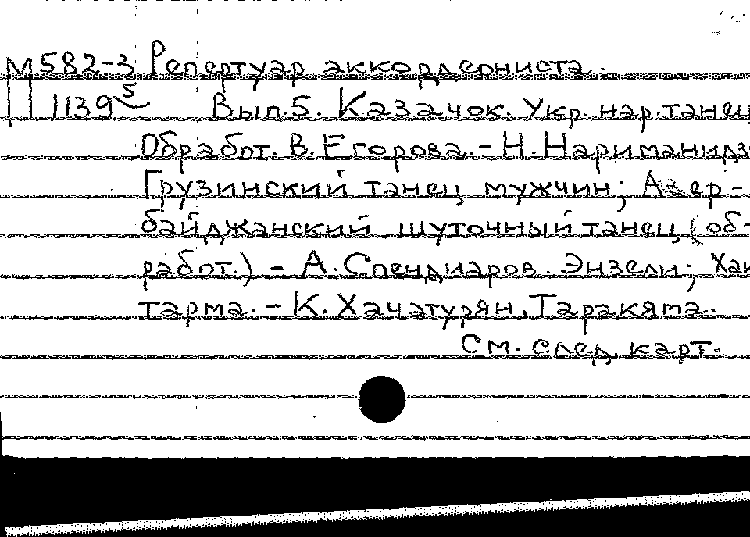 М582-3 Репертуар аккордеониста.
1139⁵ Вып.5. Казачок. Укр. нар. танец
Обработ. В. Егорова. - Н. Нариманидз
Грузинский танец мужчин; Азер-
байджанский шуточный танец (об-
работ.) - А. Спендиаров. Энзели; Хай
тарма. - К. Хачатурян. Таракяма.
См. след. карт.